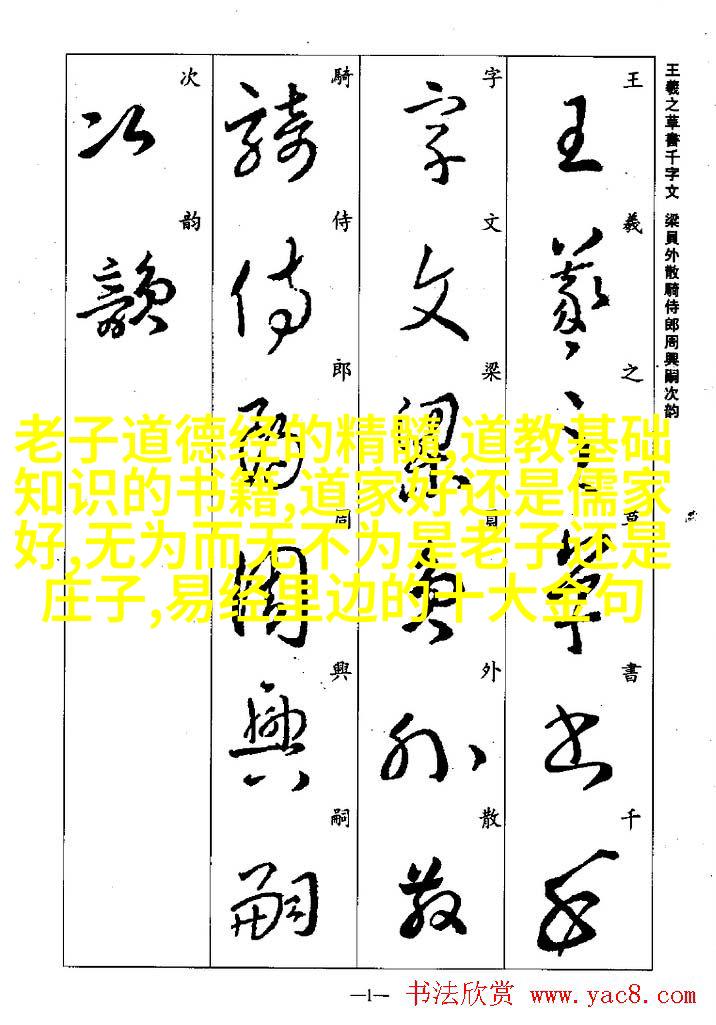 王羲之草書千字文 梁員外散騎侍郎周興嗣次韵
王羲之草書千
字文梁員外散
騎侍郎周興嗣
次韵
王羲之草書千
字文梁員外散
騎侍郎周興嗣
次韵
老子道德经的精髓,道教基础
知识的书籍,道家好还是儒家
好,无为而无不为是老子还是
庄子,易经里边的十大金句
—1—
书法欣赏 www.yac8.com